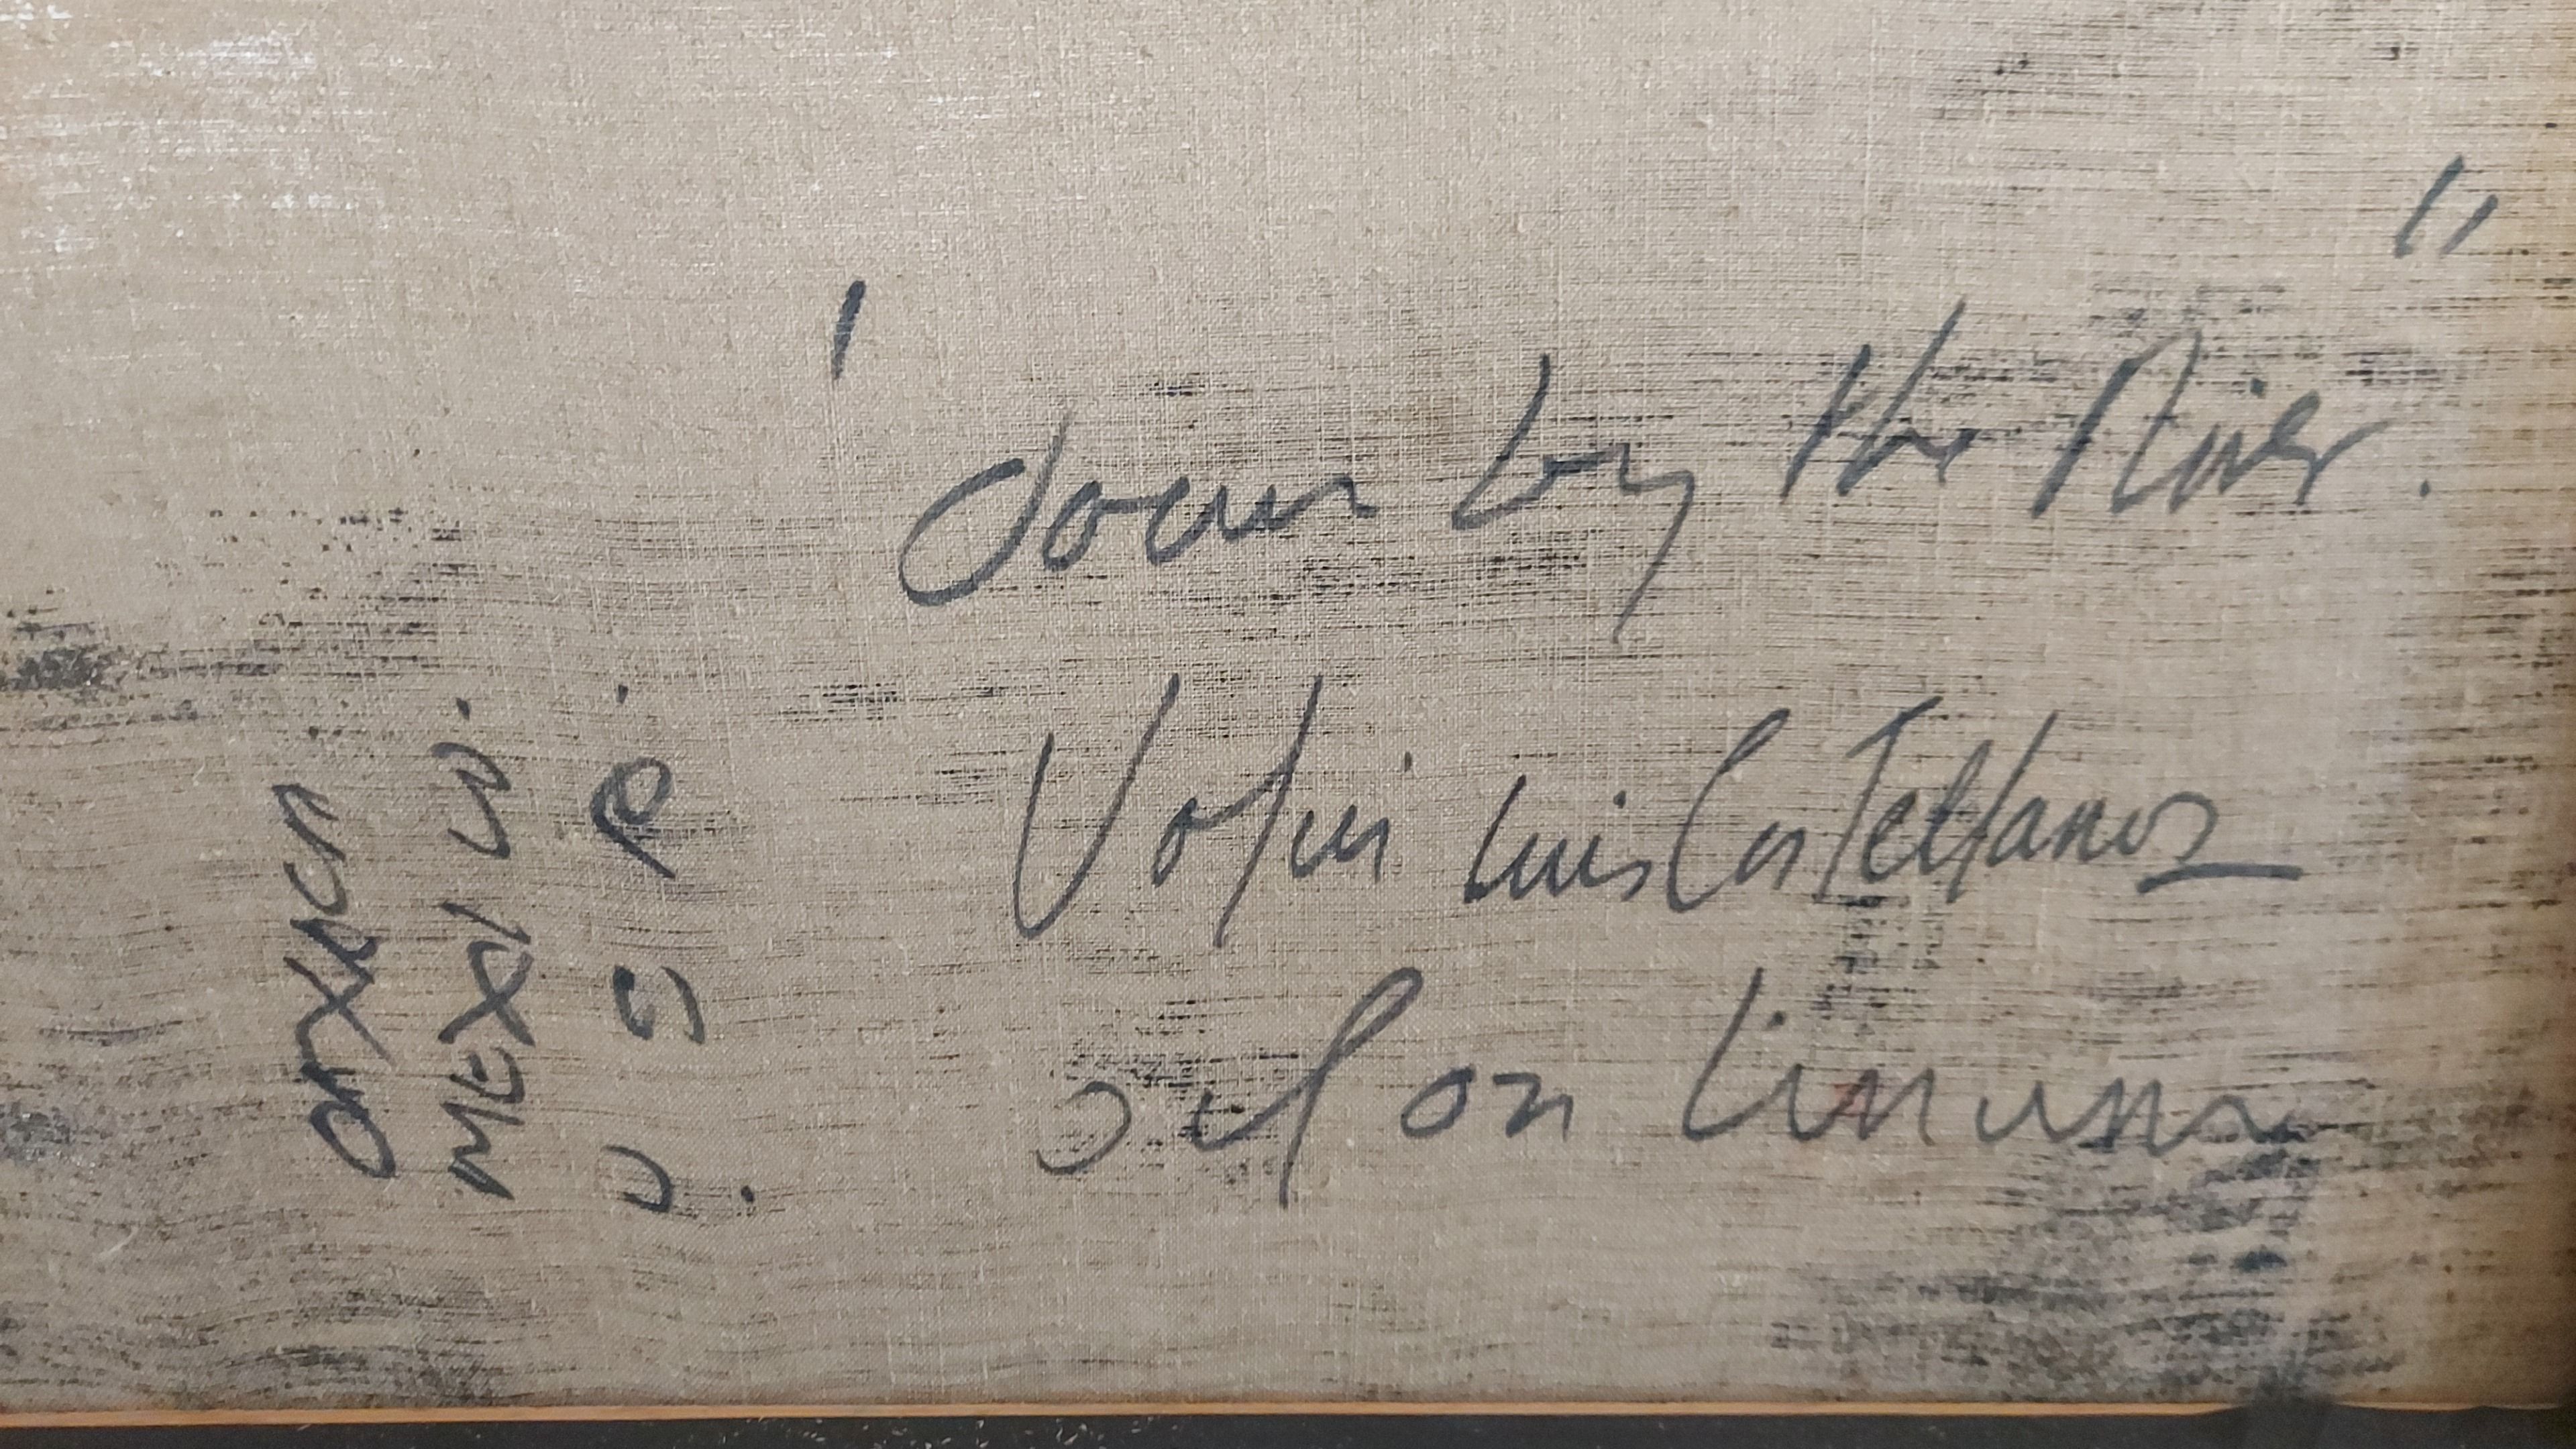 'down by the River."
Luis Castellanos
oil on
OAXACA
MEXICO.